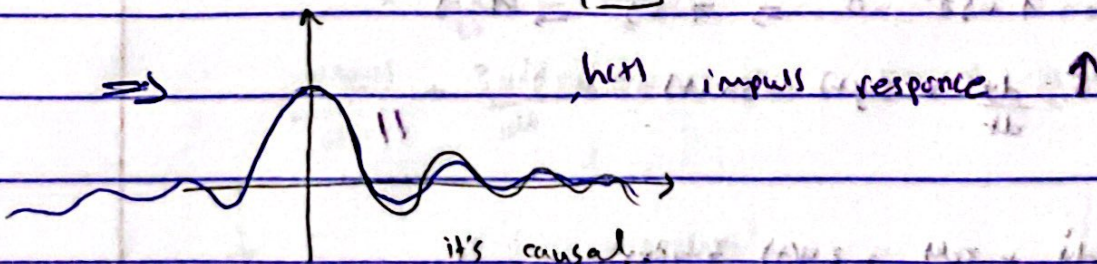 ⇒ h(t) impuls responce ↑
it's causal